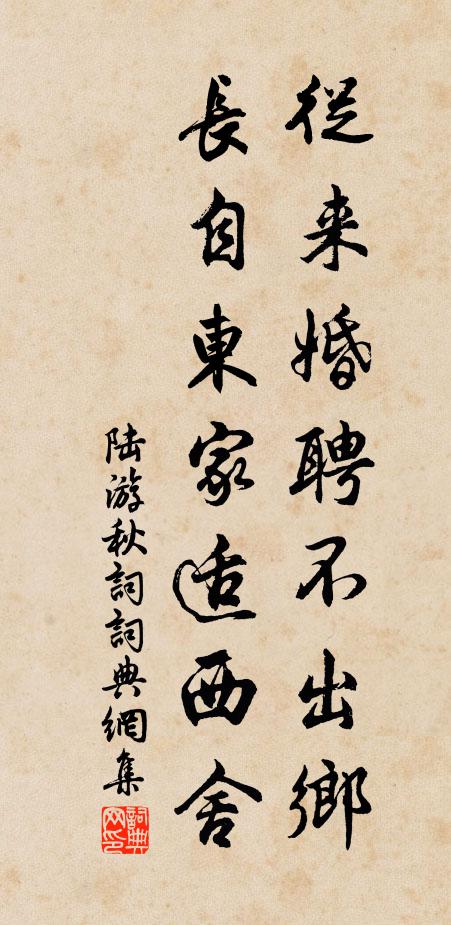 從来婚聘不出鄉
長自東家适西舍
陆游秋詞詞典網集
詞典
网印